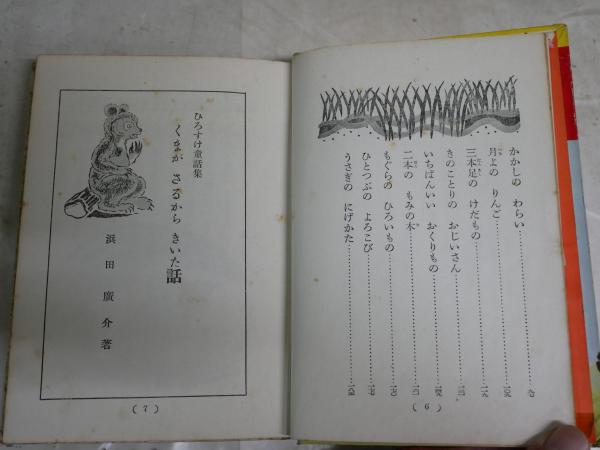 かかしの わらい
月よの りんご
三本足の けだもの
きのことりの おじいさん
いちばんいい おくりもの
二本の もみの木
もぐらの ひろいもの
ひとつぶの よろこび
うさぎの にげかた
(6)
ひろすけ童話集
くまが さるから きいた話
浜田廣介著
(7)